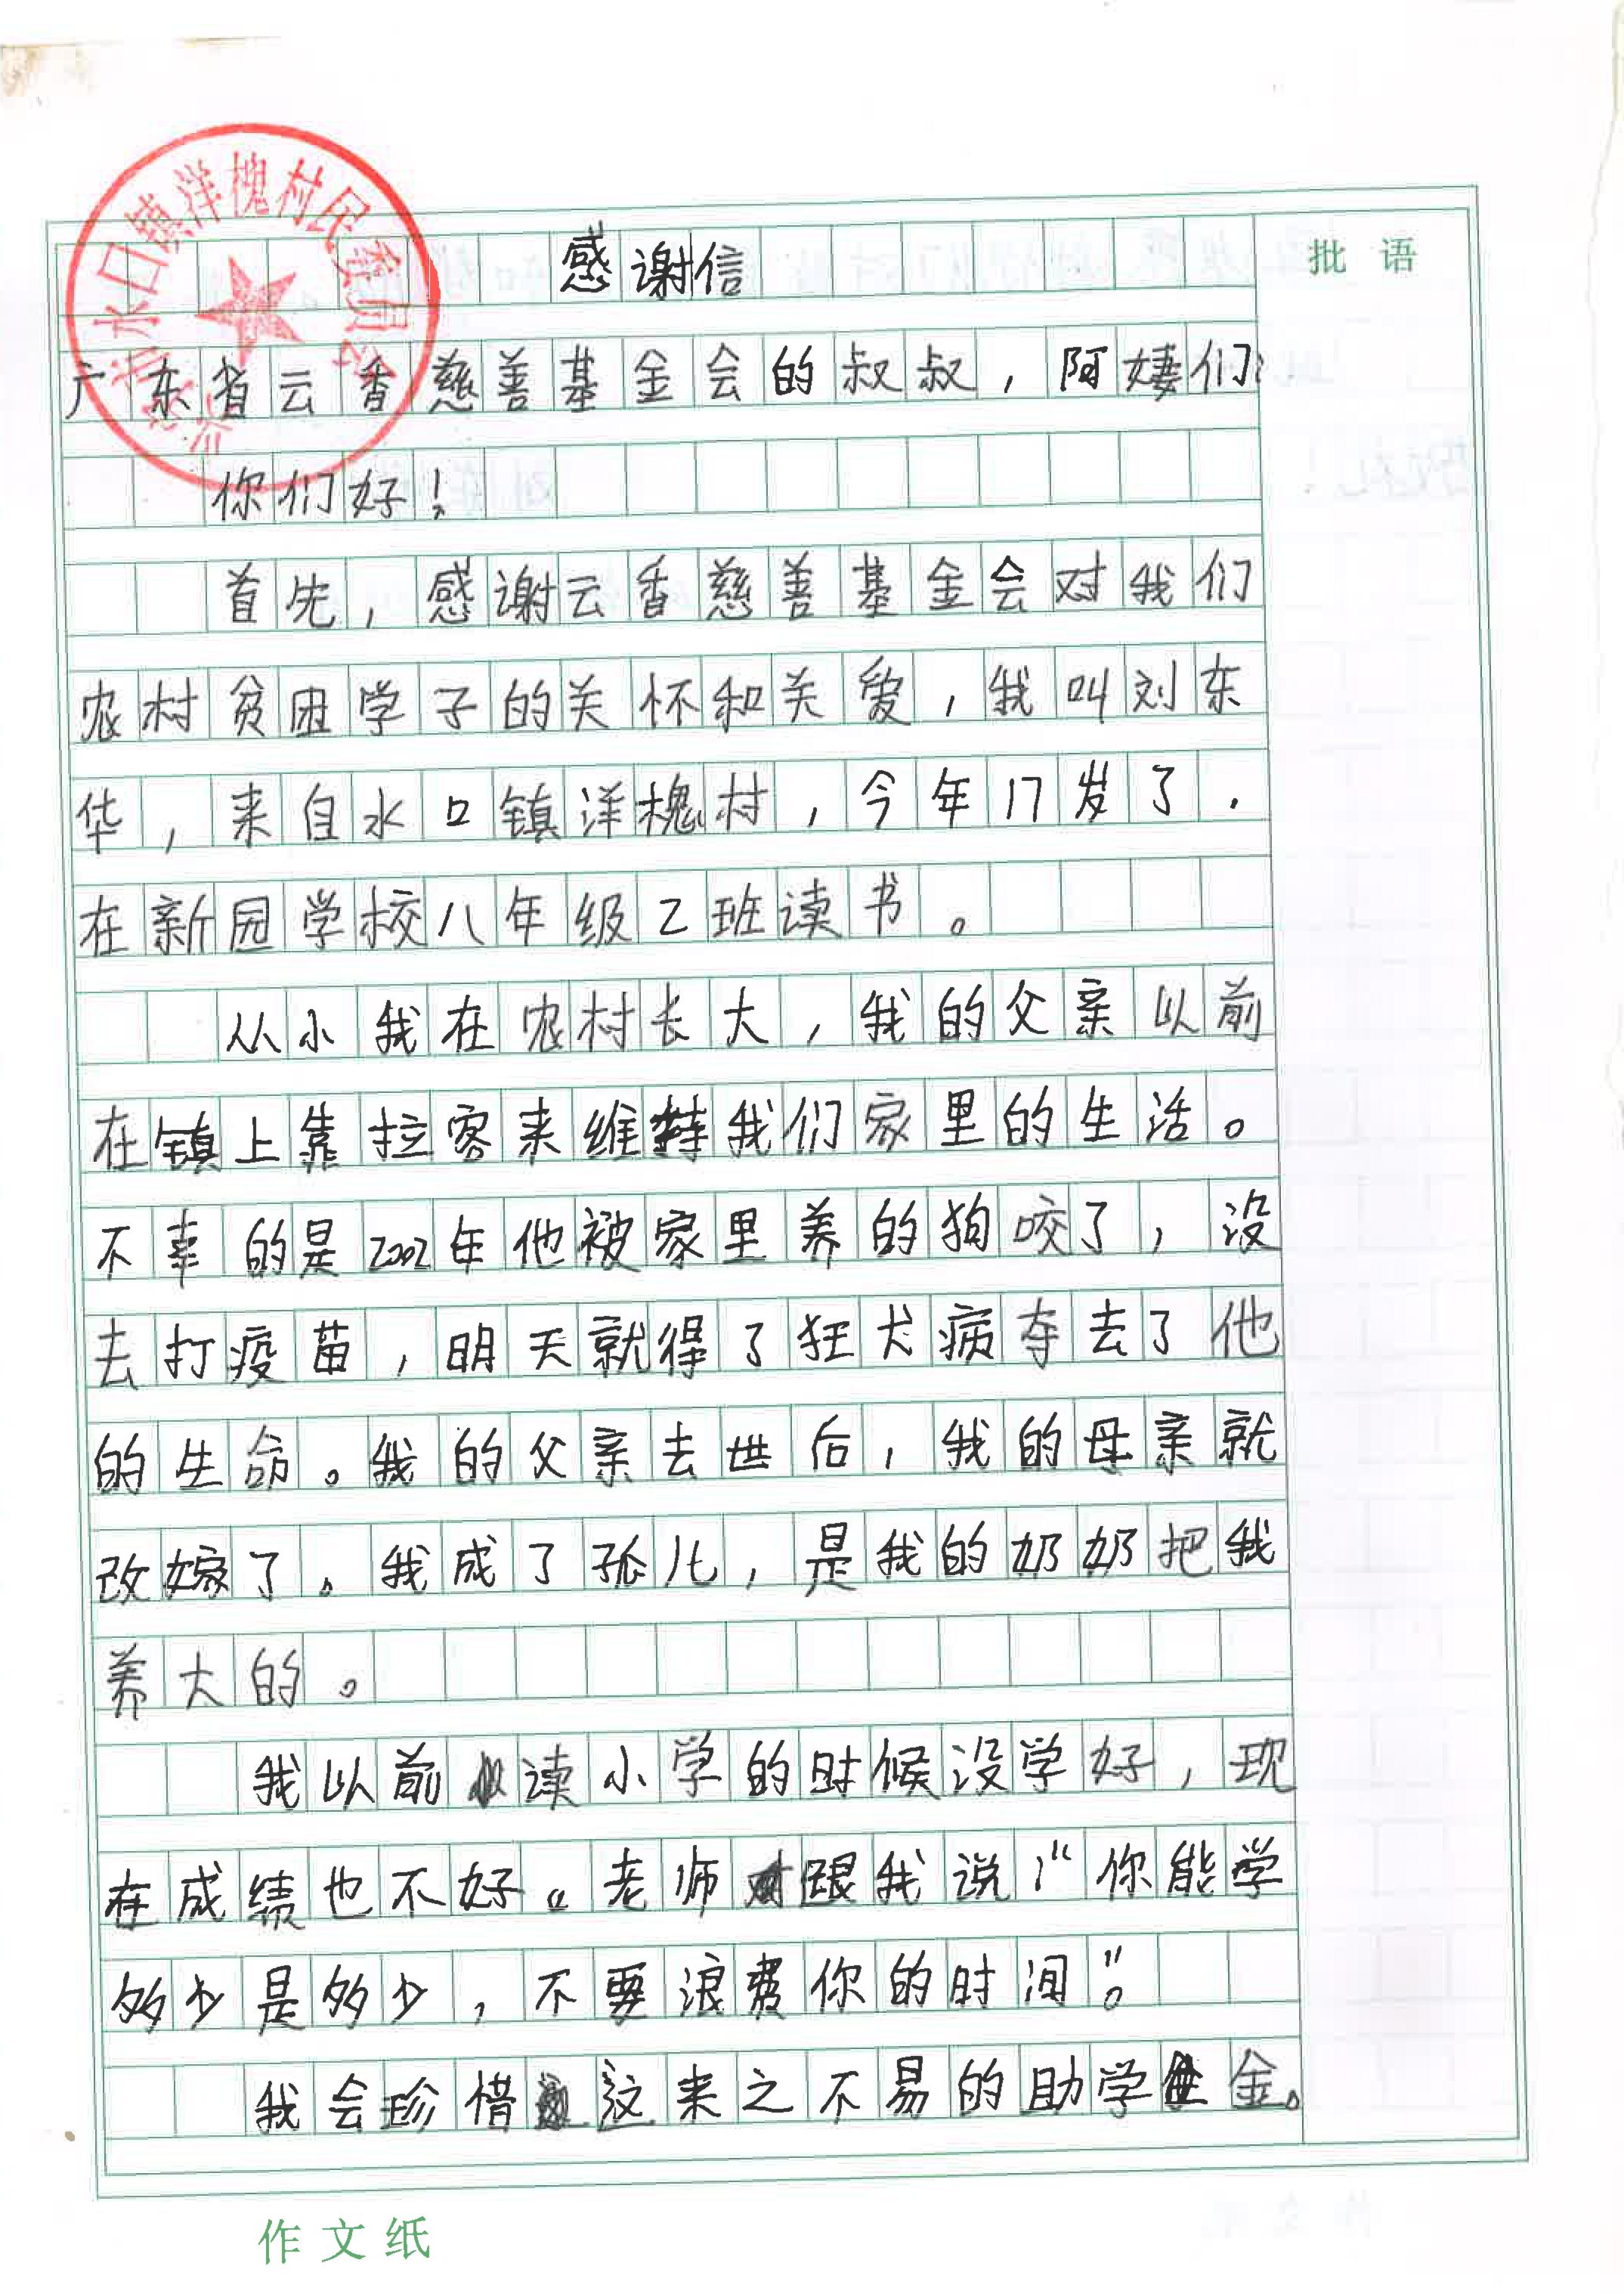 水口镇洋槐村民委员会
感谢信
批语
广东省云香慈善基金会的叔叔，阿姨们：
你们好！
首先，感谢云香慈善基金会对我们
农村贫困学子的关怀和关爱，我叫刘东
华，来自水口镇洋槐村，今年17岁了．
在新园学校八年级乙班读书。
从小我在农村长大，我的父亲以前
在镇上靠拉客来维持我们家里的生活。
不幸的是2002年他被家里养的狗咬了，没
去打疫苗，明天就得了狂犬病夺去了他
的生命。我的父亲去世后，我的母亲就
改嫁了。我成了孤儿，是我的奶奶把我
养大的。
我以前读小学的时候没学好，现
在成绩也不好。老师跟我说，“你能学
多少是多少，不要浪费你的时间”。
我会珍惜这来之不易的助学金。
作文纸